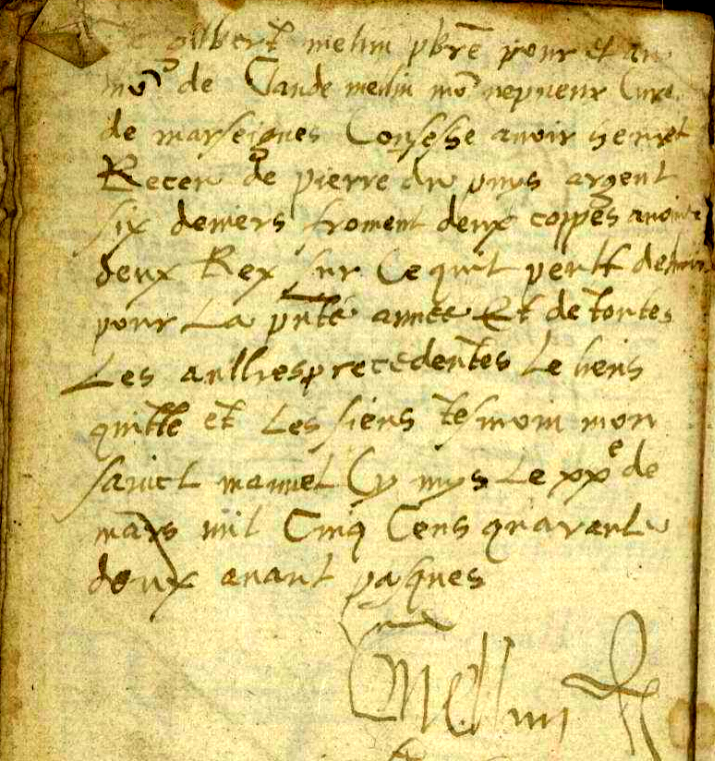 gilbert melin pbrē pour et au
nō de Claude melin mō nepveur Cure
de marseignes Confesse avoir heu et
Receu de pierre du puys argent
six deniers froment deux coppes avoine
deux Rez sur Ce quil peult debvoir
pour La pn̄te annee Et de toutes
Les aultres precedentes Le tiens
quitte et Les siens tesmoin mon
sainct manuel Cy mys Le xxe de
mars mil Cinq Cens quarante
deux avant pasques
Mellin